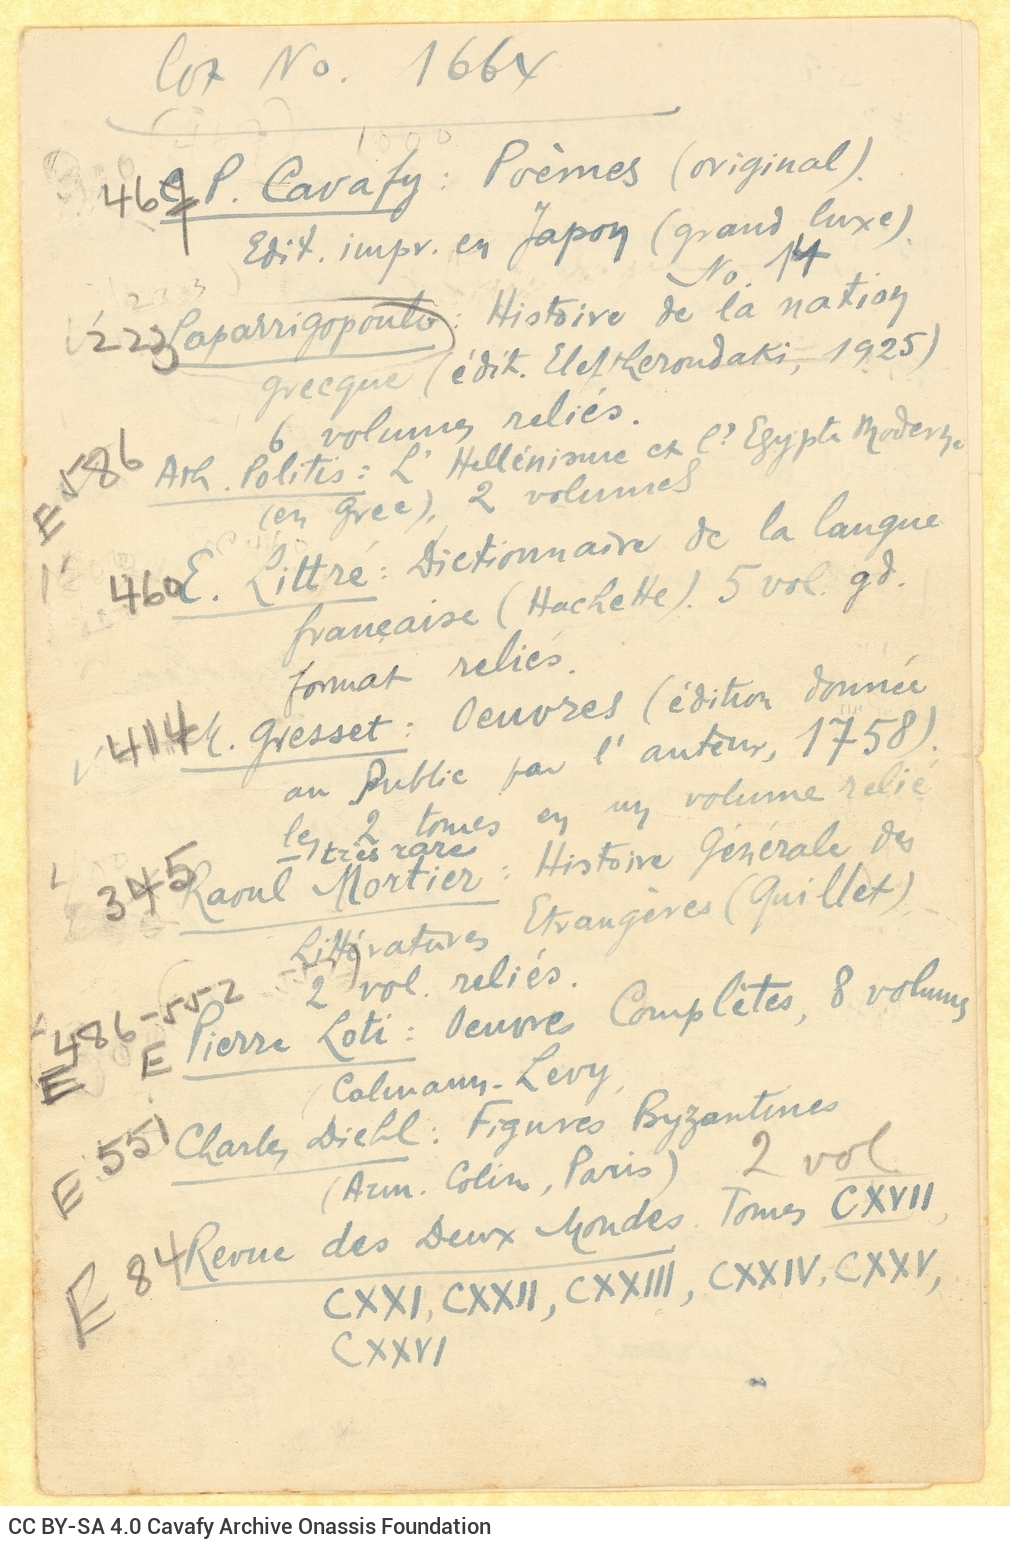 Lot No. 1664
467 C. P. Cavafy: Poèmes (original).
Edit. impr. en Japon (grand luxe).
No. 14
223 Paparrigopoulo: Histoire de la nation
grecque (édit. Eleftheroudaki, 1925)
6 volumes reliés.
E 586 Ath. Politis: L' Hellénisme et l' Egypte Moderne
(en Grec), 2 volumes
460 E. Littré: Dictionnaire de la langue
française (Hachette). 5 vol. gd.
format reliés.
414 M. Gresset: Oeuvres (édition donnée
au Public par l' auteur, 1758).
les 2 tomes en un volume relié
très rare
345 Raoul Mortier: Histoire Générale des
Littératures Etrangères (Quillet)
2 vol. reliés.
E 486-552 E Pierre Loti: Oeuvres Complètes, 8 volumes
(Calmann-Levy)
E 551 Charles Diehl: Figures Byzantines
(Arm. Colin, Paris) 2 vol
E 84 Revue des Deux Mondes. Tomes CXVII,
CXXI, CXXII, CXXIII, CXXIV, CXXV,
CXXVI
CC BY-SA 4.0 Cavafy Archive Onassis Foundation